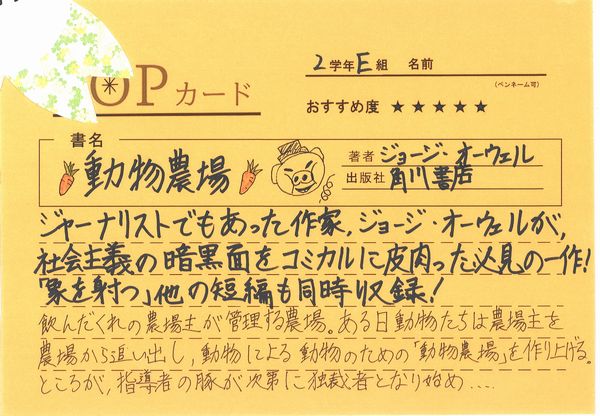 OPカード
2学年E組 名前
(ペンネーム可)
おすすめ度 ★★★★★
書名
動物農場
著者 ジョージ・オーウェル
出版社 角川書店
ジャーナリストでもあった作家,ジョージ・オーウェルが,
社会主義の暗黒面をコミカルに皮肉った必見の一作!
「象を射つ」他の短編も同時収録!
飲んだくれの農場主が管理する農場。ある日動物たちは農場主を
農場から追い出し,動物による動物のための「動物農場」を作り上げる。
ところが,指導者の豚が次第に独裁者となり始め....